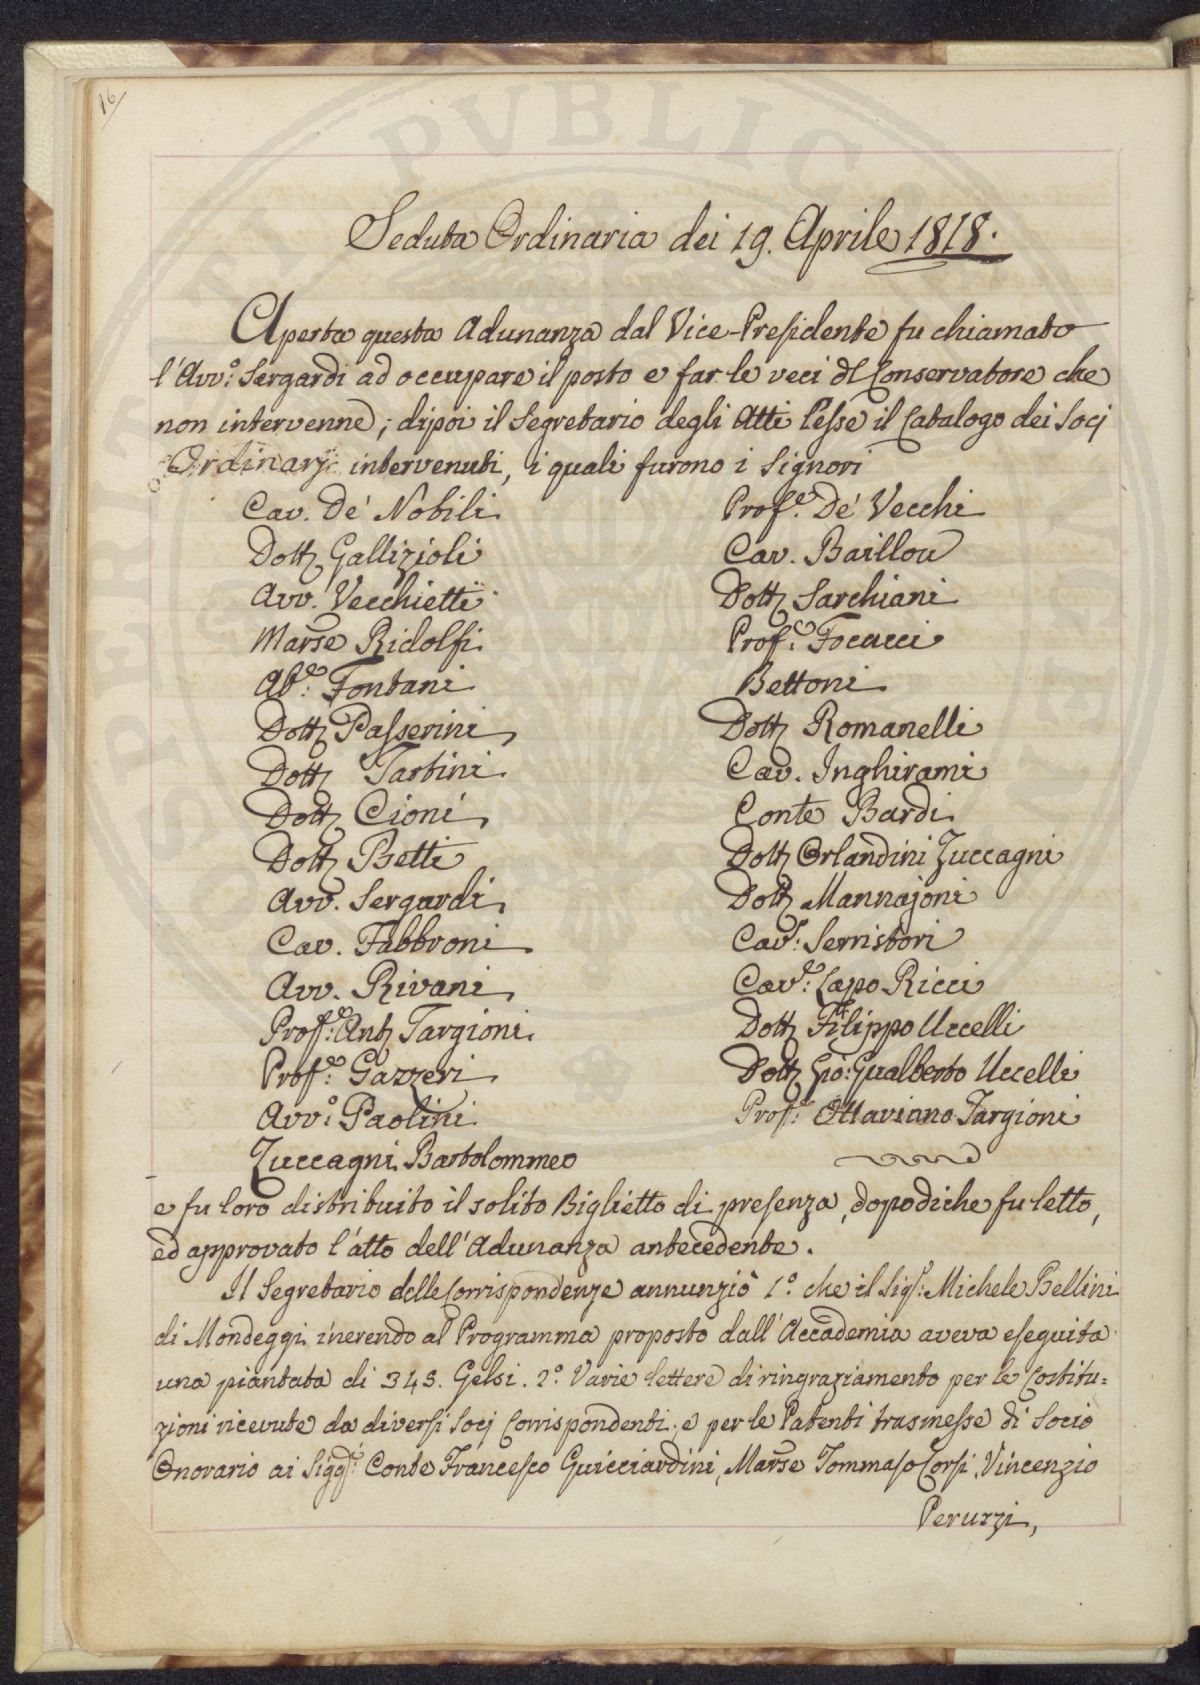 16
Seduta Ordinaria dei 19. Aprile 1818.
Aperta questa Adunanza dal Vice-Presidente fu chiamato
l'Avv.º Sergardi ad occupare il posto e far le veci dl Conservatore che
non intervenne; dipoi il Segretario degli Atti lesse il Catalogo dei Socj
Ordinarj intervenuti, i quali furono i Signori
Cav. De' Nobili
Dott. Gallizioli
Avv. Vecchietti
Marse Ridolfi
Ab.e Fontani
Dott. Passerini
Dott. Tartini
Dott. Cioni
Dott. Betti
Avv. Sergardi
Cav. Fabbroni
Avv. Rivani
Prof.e Ant. Targioni
Prof.e Gazzeri
Avv.º Paolini
Zuccagni Bartolommeo
Prof.e De' Vecchi
Cav. Baillou
Dott. Sarchiani
Prof.e Focacci
Bettoni
Dott. Romanelli
Cav. Inghirami
Conte Bardi
Dott. Orlandini Zuccagni
Dott. Mannajoni
Cav.e Serristori
Cav.e Lapo Ricci
Dott. Filippo Uccelli
Dott. Gio: Gualberto Uccelli
Prof.e Ottaviano Targioni
e fu loro distribuito il solito Biglietto di presenza, dopodiche fu letto,
ed approvato l'atto dell'Adunanza antecedente.
Il Segretario delle Corrispondenze annunziò 1.º che il Sig.r Michele Bellini
di Mondeggi inerendo al Programma proposto dall'Accademia aveva eseguita
una piantata di 343. Gelsi. 2.º Varie lettere di ringraziamento per le Costitu=
zioni ricevute da diversi Socj Corrispondenti, e per le Patenti trasmesse di Socio
Onorario ai Sigg.ri Conte Francesco Guicciardini, Marse Tommaso Corsi, Vincenzio
Peruzzi,